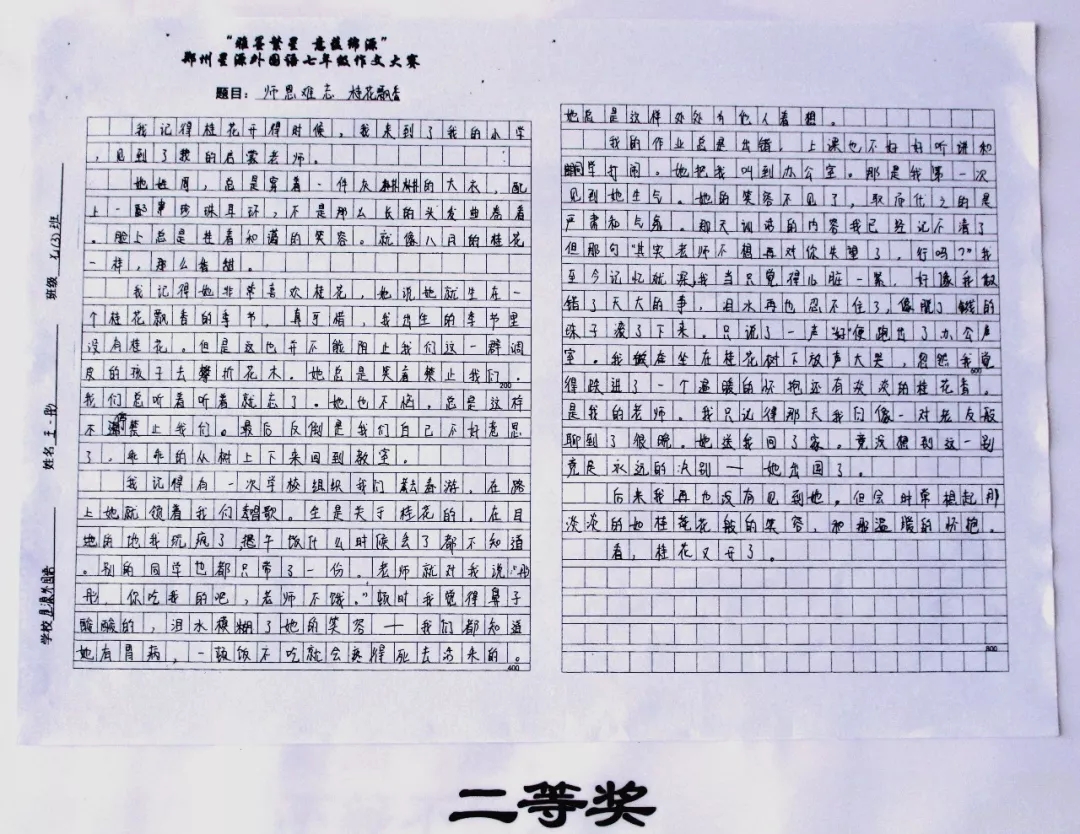 “雅墨繁星 意蕴绵源”
郑州星源外国语七年级作文大赛
题目：师恩难忘 桂花飘香
学校 星源外国语
姓名 王一彤
班级 七(3)班
我记得桂花开得时候，我来到了我的小学
，见到了我的启蒙老师。
她姓周，总是穿着一件灰的大衣，配
上一串珍珠耳环，不是那么长的头发曲卷着
。脸上总是挂着和蔼的笑容。就像八月的桂花
一样，那么香甜。
我记得她非常喜欢桂花，她说她就生在一
个桂花飘香的季节，真可惜，我出生的季节里
没有桂花。但是这也并不能阻止我们这一群调
皮的孩子去攀折花木。她总是笑着禁止我们。
200
我们总听着听着就忘了。她也不恼，总是这样
不停禁止我们。最后反倒是我们自己不好意思
了，乖乖的从树上下来回到教室。
我记得有一次学校组织我们去春游，在路
上她就领着我们唱歌。全是关于桂花的，在目
地的地我玩疯了，把午饭什么时候丢了都不知道
。别的同学也都只带了一份。老师就对我说“彤
彤 你吃我的吧，老师不饿。”顿时我觉得鼻子
酸酸的，泪水模糊了她的笑容——我们都知道
她有胃病，一顿饭不吃就会疼得死去活来的。
400
她总是这样处处为他人着想。
我的作业总是出错，上课也不好好听课和
同学打闹。她把我叫到办公室。那是我第一次
见到她生气。她的笑容不见了，取而代之的是
严肃和气愤。那天训话的内容我已经记不清了
但那句“其实老师不想再对你失望了，行吗？”我
至今记忆犹深，我当只觉得心脏一紧，好像我做
错了天大的事，泪水再也忍不住了，像脱了线的
珠子滚了下来。只说了一声“好”便跑出了办公
室。我坐在桂花树下放声大哭，忽然我觉
600
得跌进了一个温暖的怀抱还有淡淡的桂花香。
是我的老师。我只记得那天我们像一对老友般
聊到了很晚。她送我回了家。竟没想到这一别
竟是永远的决别——她出国了。
后来我再也没有见到她。但会时常想起那
淡淡的如桂花般的笑容，和那温暖的怀抱。
看，桂花又开了。
800
二等奖